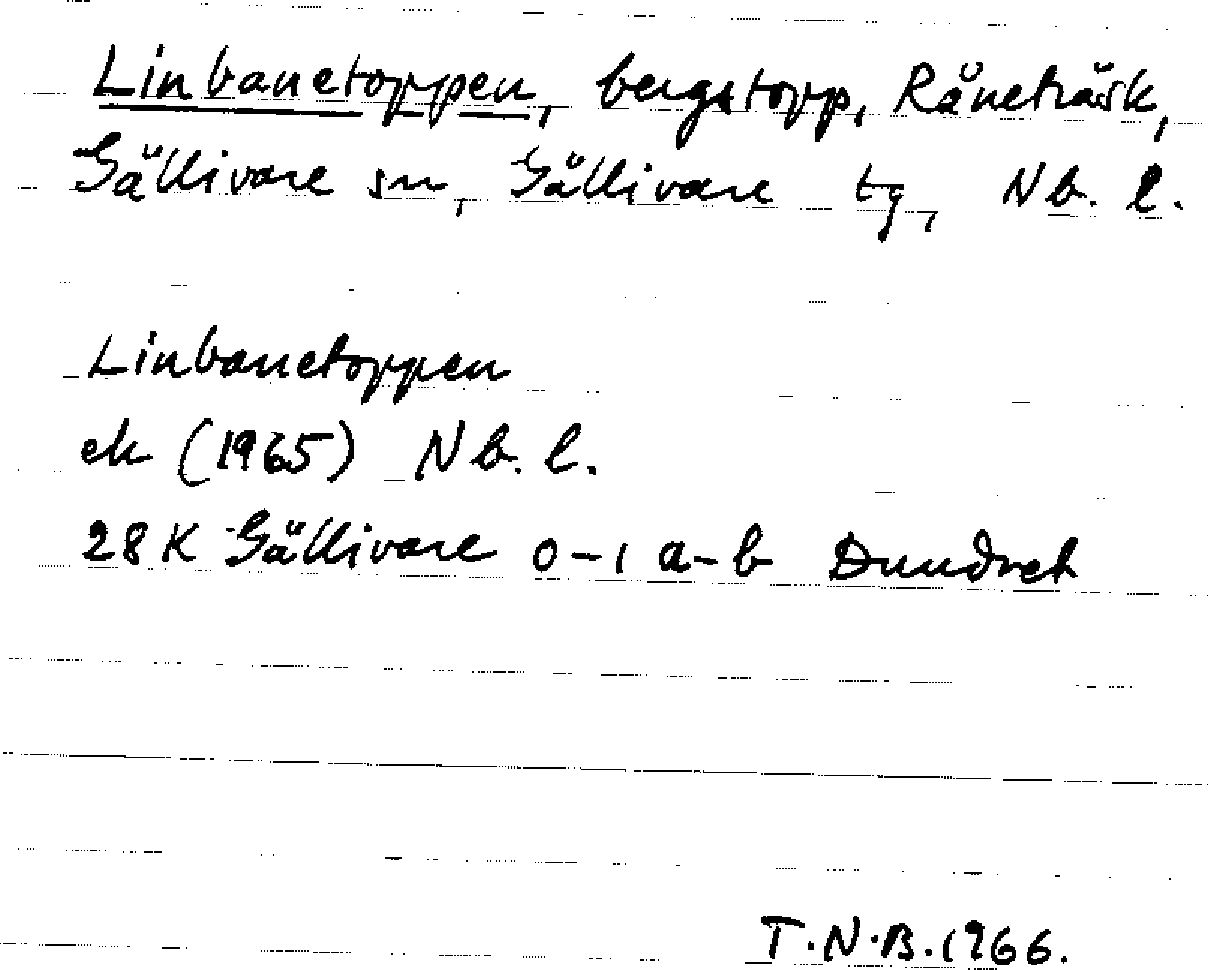 Linbanetoppen, bergstopp, Råneträsk,
Gällivare sn, Gällivare tg, Nb. l.
Linbanetoppen
ek (1965) Nb. l.
28 K Gällivare 0-1 a-b Dundret
T.N.B. 1966.